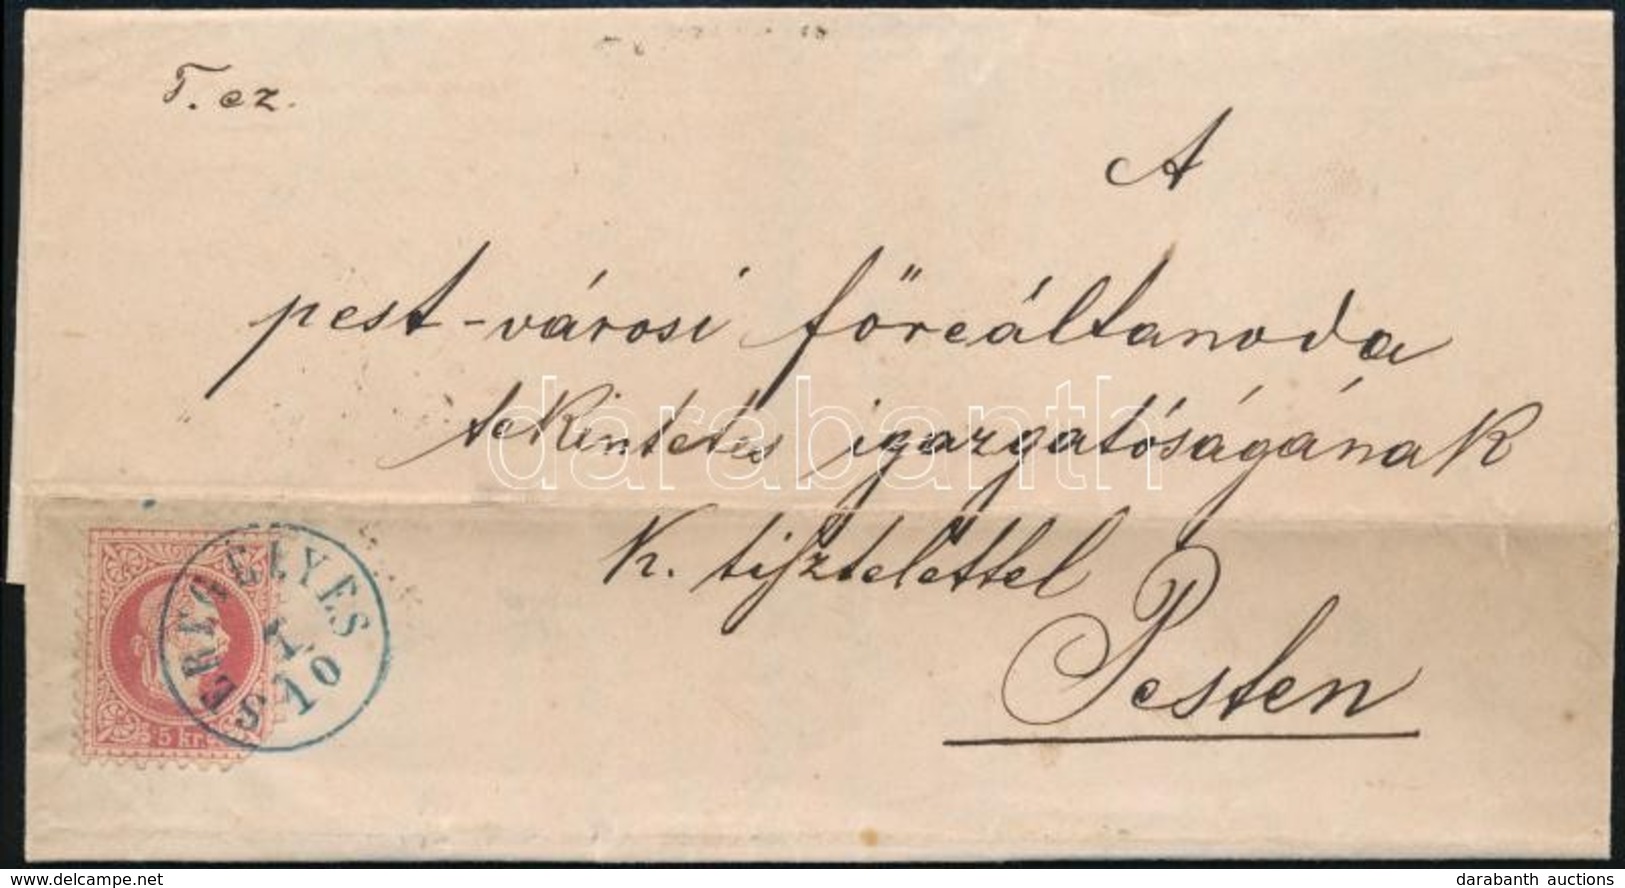 T. ez.
A
pest-városi főreáltanoda
tekintetes igazgatóságának
k. tisztelettel
Pesten
5 kr.
darabanth
www.delcampe.net
darabanth auctions